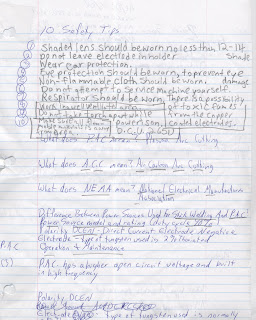 10 Safety Tips
1 Shaded lens should be worn no less than 12-14 Shade
Do not leave electrode in holder
Wear ear protection.
Eye protection should be worn, to prevent eye damage
Non-flammable cloth should be worn.
Do not attempt to service machine yourself.
Respirator should be worn. There is a possibility
of toxic fumes
Do not take torch apart while from the copper
coated electrodes.
What does P.A.C mean? Plasma Arc Cutting
What does A.C.C mean? Air Carbon Arc Cutting
What does NEMA mean? National Electrical Manufacturers
Association
Difference Between Power Sources Used for Stick Welding And P.A.C
Power Source model and rating
Polarity DCEN - Direct Current Electrode Negative
Electrode - type of tungsten used is 2% thoriated
P.A.C Operation & Maintenance
(S) P.A.C has a higher open circuit voltage and built
in high frequency
Polarity DCEN
Electrode type of tungsten used is normally